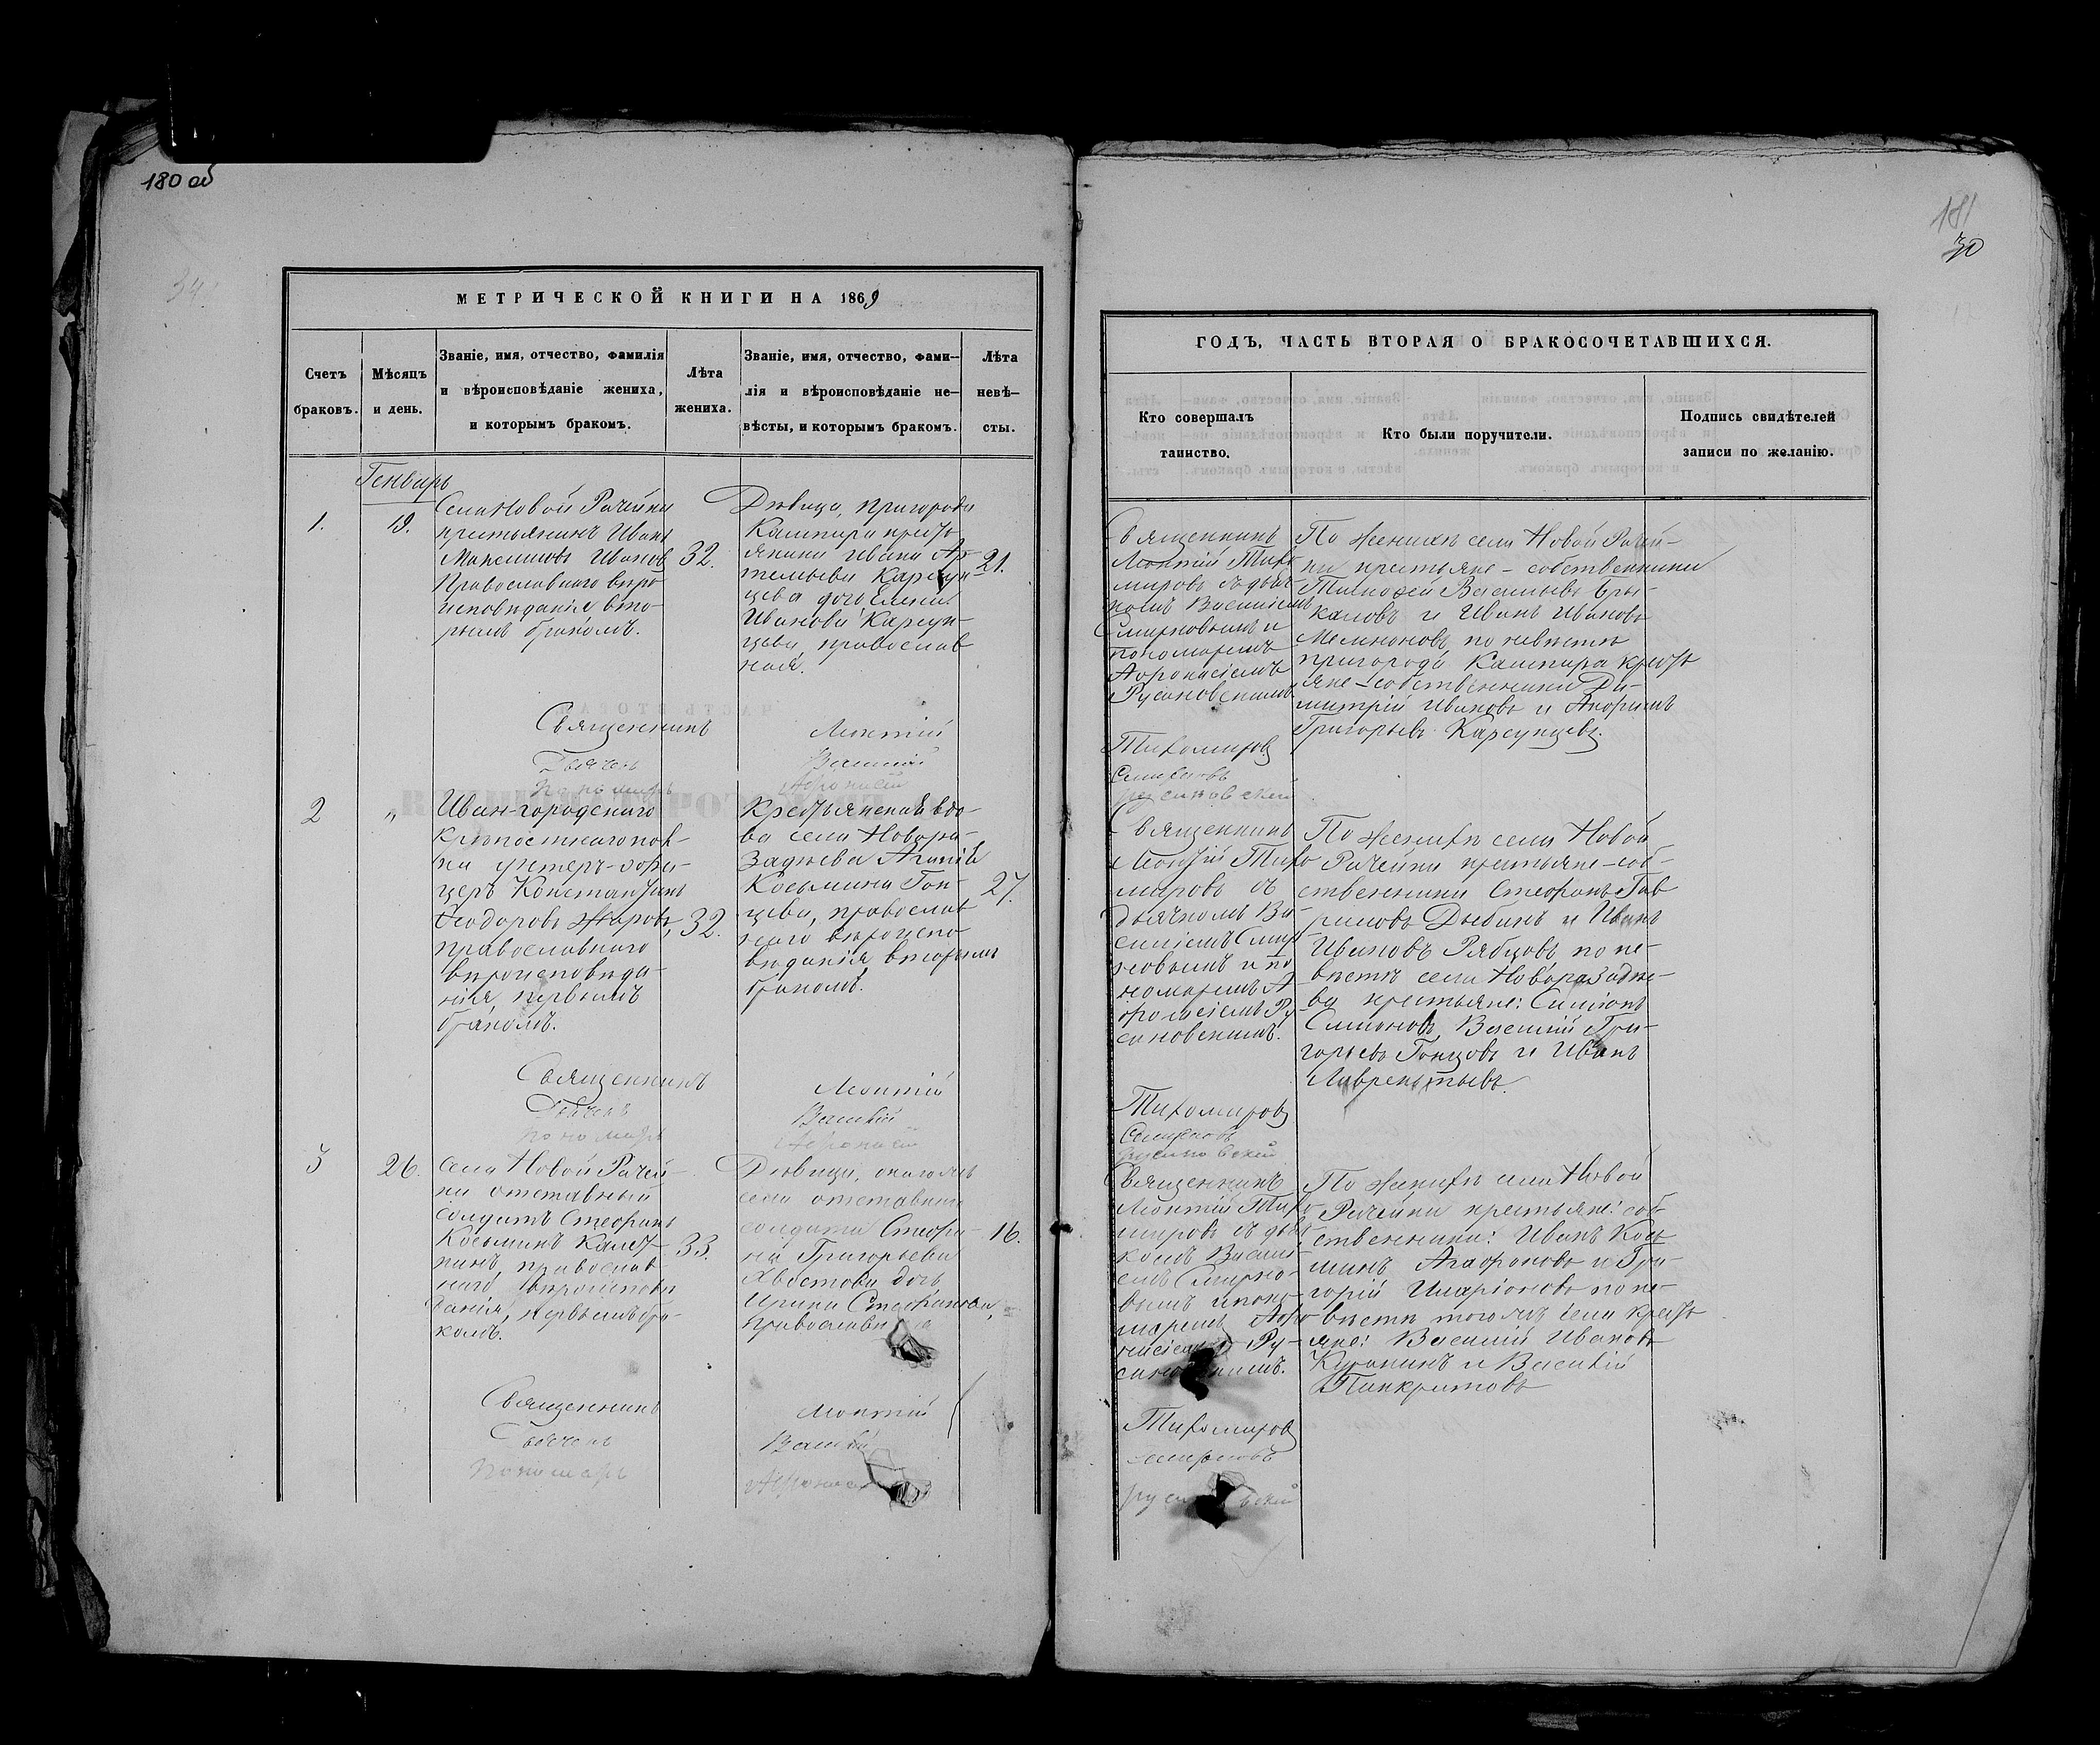 180 об
181
30
МЕТРИЧЕСКОЙ КНИГИ НА 1869
Счетъ браковъ.
Мѣсяцъ и день.
Званіе, имя, отчество, фамилія
и вѣроисповѣданіе жениха,
и которымъ бракомъ.
Лѣта
жениха.
Званіе, имя, отчество, фами-
лія и вѣроисповѣданіе не-
вѣсты, и которымъ бракомъ.
Лѣта
невѣ-
сты.
Генварь
1.
19.
Села Новой Рачейки
крестьянинъ Иванъ
Максимовъ Ивановъ
Православнаго вѣро
исповѣданія вто-
рымъ бракомъ.
32.
Дѣвица, пригорода
Кашпира кресть
янина Ивана Ар-
темьева Карсун-
цева дочь Елена
Иванова Карсун-
цева, православ
ная.
21.
Священникъ Леонтій
Дьячекъ Василій
пономарь Афонасій
2
"
Иван-городскаго
крѣпостнаго пол-
ка унтеръ-офи-
церъ Константинъ
Ѳеодоровъ Жаровъ,
православнаго
вѣроисповѣда-
нія, первымъ
бракомъ.
32.
Крестьянская вдо-
ва села Новора-
Козьмина Гон-
цева, православ
наго вѣроиспо
вѣданія, вторымъ
бракомъ.
27.
Священникъ Леонтій
Дьячекъ Василій
пономарь Афонасій
3
26.
Села Новой Рачей-
ки отставный
солдатъ Стефанъ
Козьминъ
православ
наго вѣроисповѣ
данія, первымъ бра-
комъ.
33.
Дѣвица, онаго жъ
села отставнаго
солдата Стефа-
на Григорьева
Хвостова дочь
Ирина Стефанова,
православная
16.
Священникъ Леонтій
Дьячекъ Василій
Пономарь Афонасій
ГОДЪ, ЧАСТЬ ВТОРАЯ О БРАКОСОЧЕТАВШИХСЯ.
Кто совершалъ
таинство.
Кто были поручители.
Подпись свидѣтелей
записи по желанію.
Священникъ
Леонтій Тихо
мировъ съ дьяч
комъ Василіемъ
Смирновымъ и
пономаремъ
Афонасіемъ
Русановскимъ.
По женихѣ села Новой Рачей-
ки крестьяне-собственники
Тимофей Васильевъ Бры-
каловъ и Иванъ Ивановъ
по невѣстѣ
пригорода Кашпира кресть
яне-собственники Ди-
митрій Ивановъ и
Григорьевъ Карсунцевъ.
Тихомировъ
Смирновъ
Русановскій
Священникъ
Леонтій Тихо
мировъ съ
дьячкомъ Ва-
силіемъ Смир-
новымъ и по
номаремъ А
фонасіемъ Ру-
сановскимъ.
По женихѣ села Новой
Рачейки крестьяне-соб-
ственники Стефанъ Гав
риловъ Дыбинъ и Иванъ
Ивановъ Рябцовъ, по не-
вѣстѣ села
крестьяне: Симіонъ
Симоновъ, Василій Гри-
горьевъ Гонцовъ и Иванъ
Лаврентьевъ.
Тихомировъ
Смирновъ
Русановскій
Священникъ
Леонтій Тихо
мировъ съ дьяч
комъ Василі-
емъ Смирно-
вымъ и поно-
маремъ Афо
насіемъ Ру-
сановскимъ.
По женихѣ села Новой
Рачейки крестьяне: соб-
ственники: Иванъ Козь
минъ Агафоновъ и Гри-
горій Иларіоновъ по не-
вѣстѣ того жъ села кресть
яне: Василій Ивановъ
и Василій
Панкратовъ
Тихомировъ
Смирновъ
Русановскій